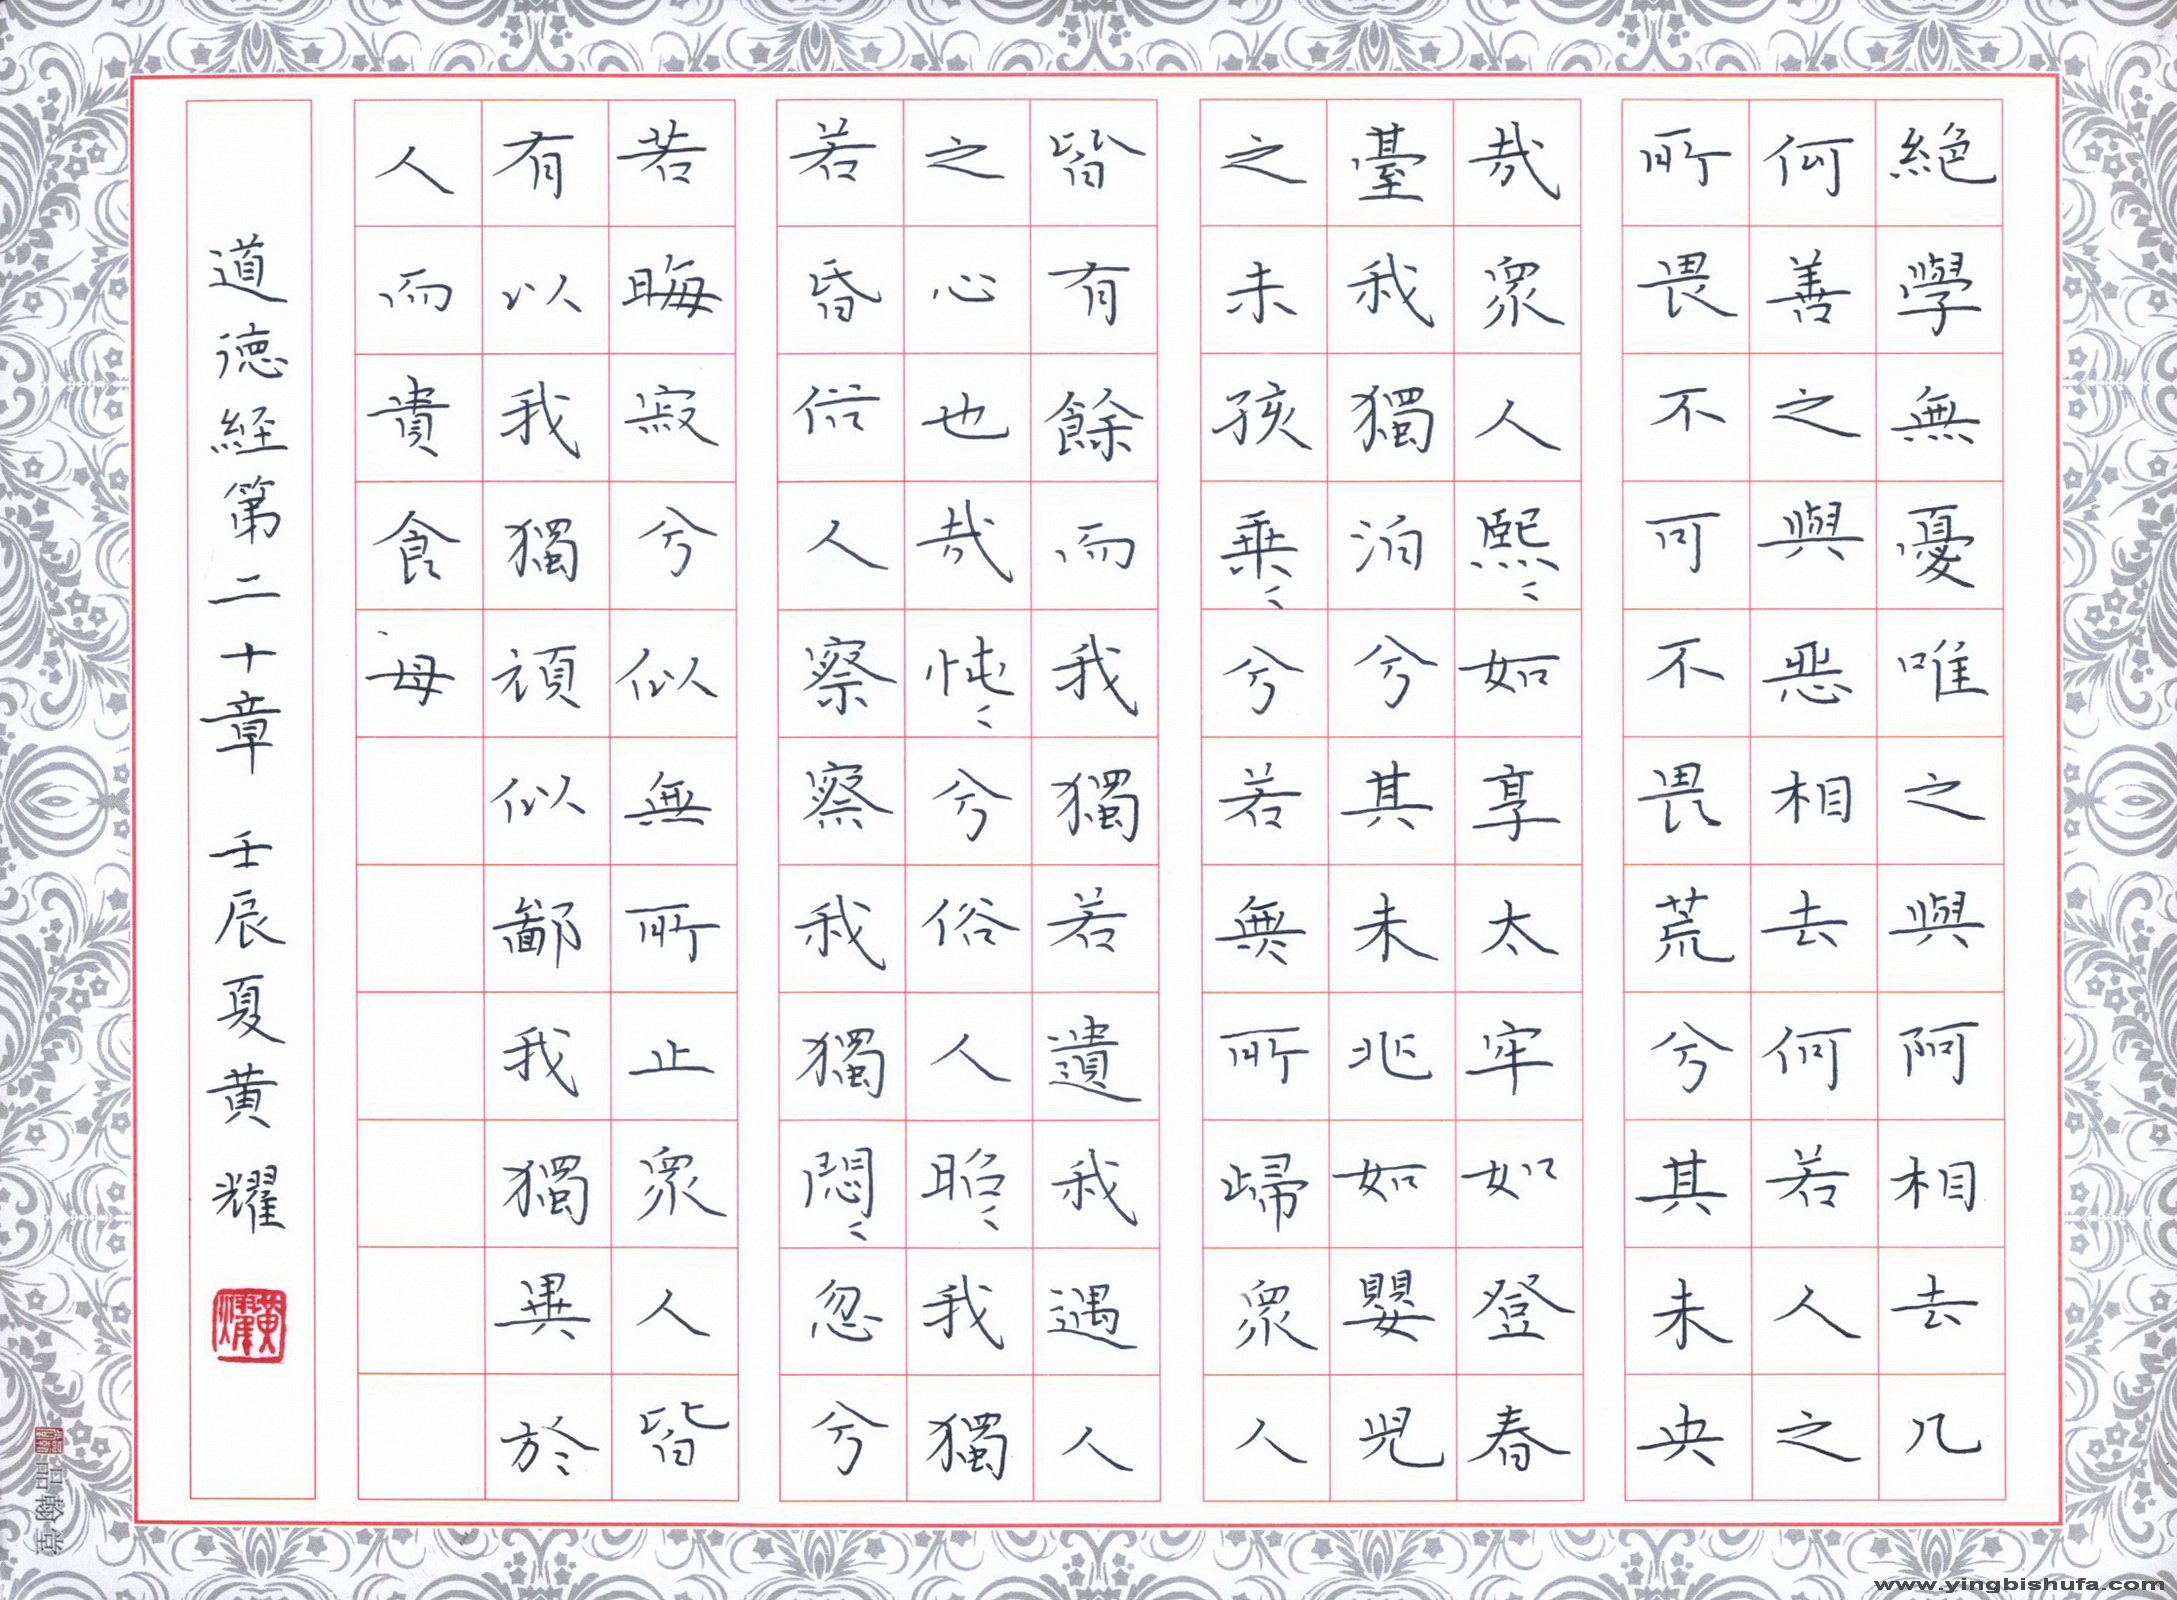 絕學無憂唯之與阿相去几
何善之與惡相去何若人之
所畏不可不畏荒兮其未央
哉眾人熙〻如享太牢如登春
臺我獨泊兮其未兆如嬰兒
之未孩乘〻兮若無所歸眾人
皆有餘而我獨若遺我遇人
之心也哉忳〻兮俗人昭〻我獨
若昏俗人察察我獨悶〻忽兮
若晦寂兮似無所止眾人皆
有以我獨頑似鄙我獨異於
人而貴食母
道德経第二十章 壬辰夏黄耀
黄耀
品翰堂
www.yingbishufa.com